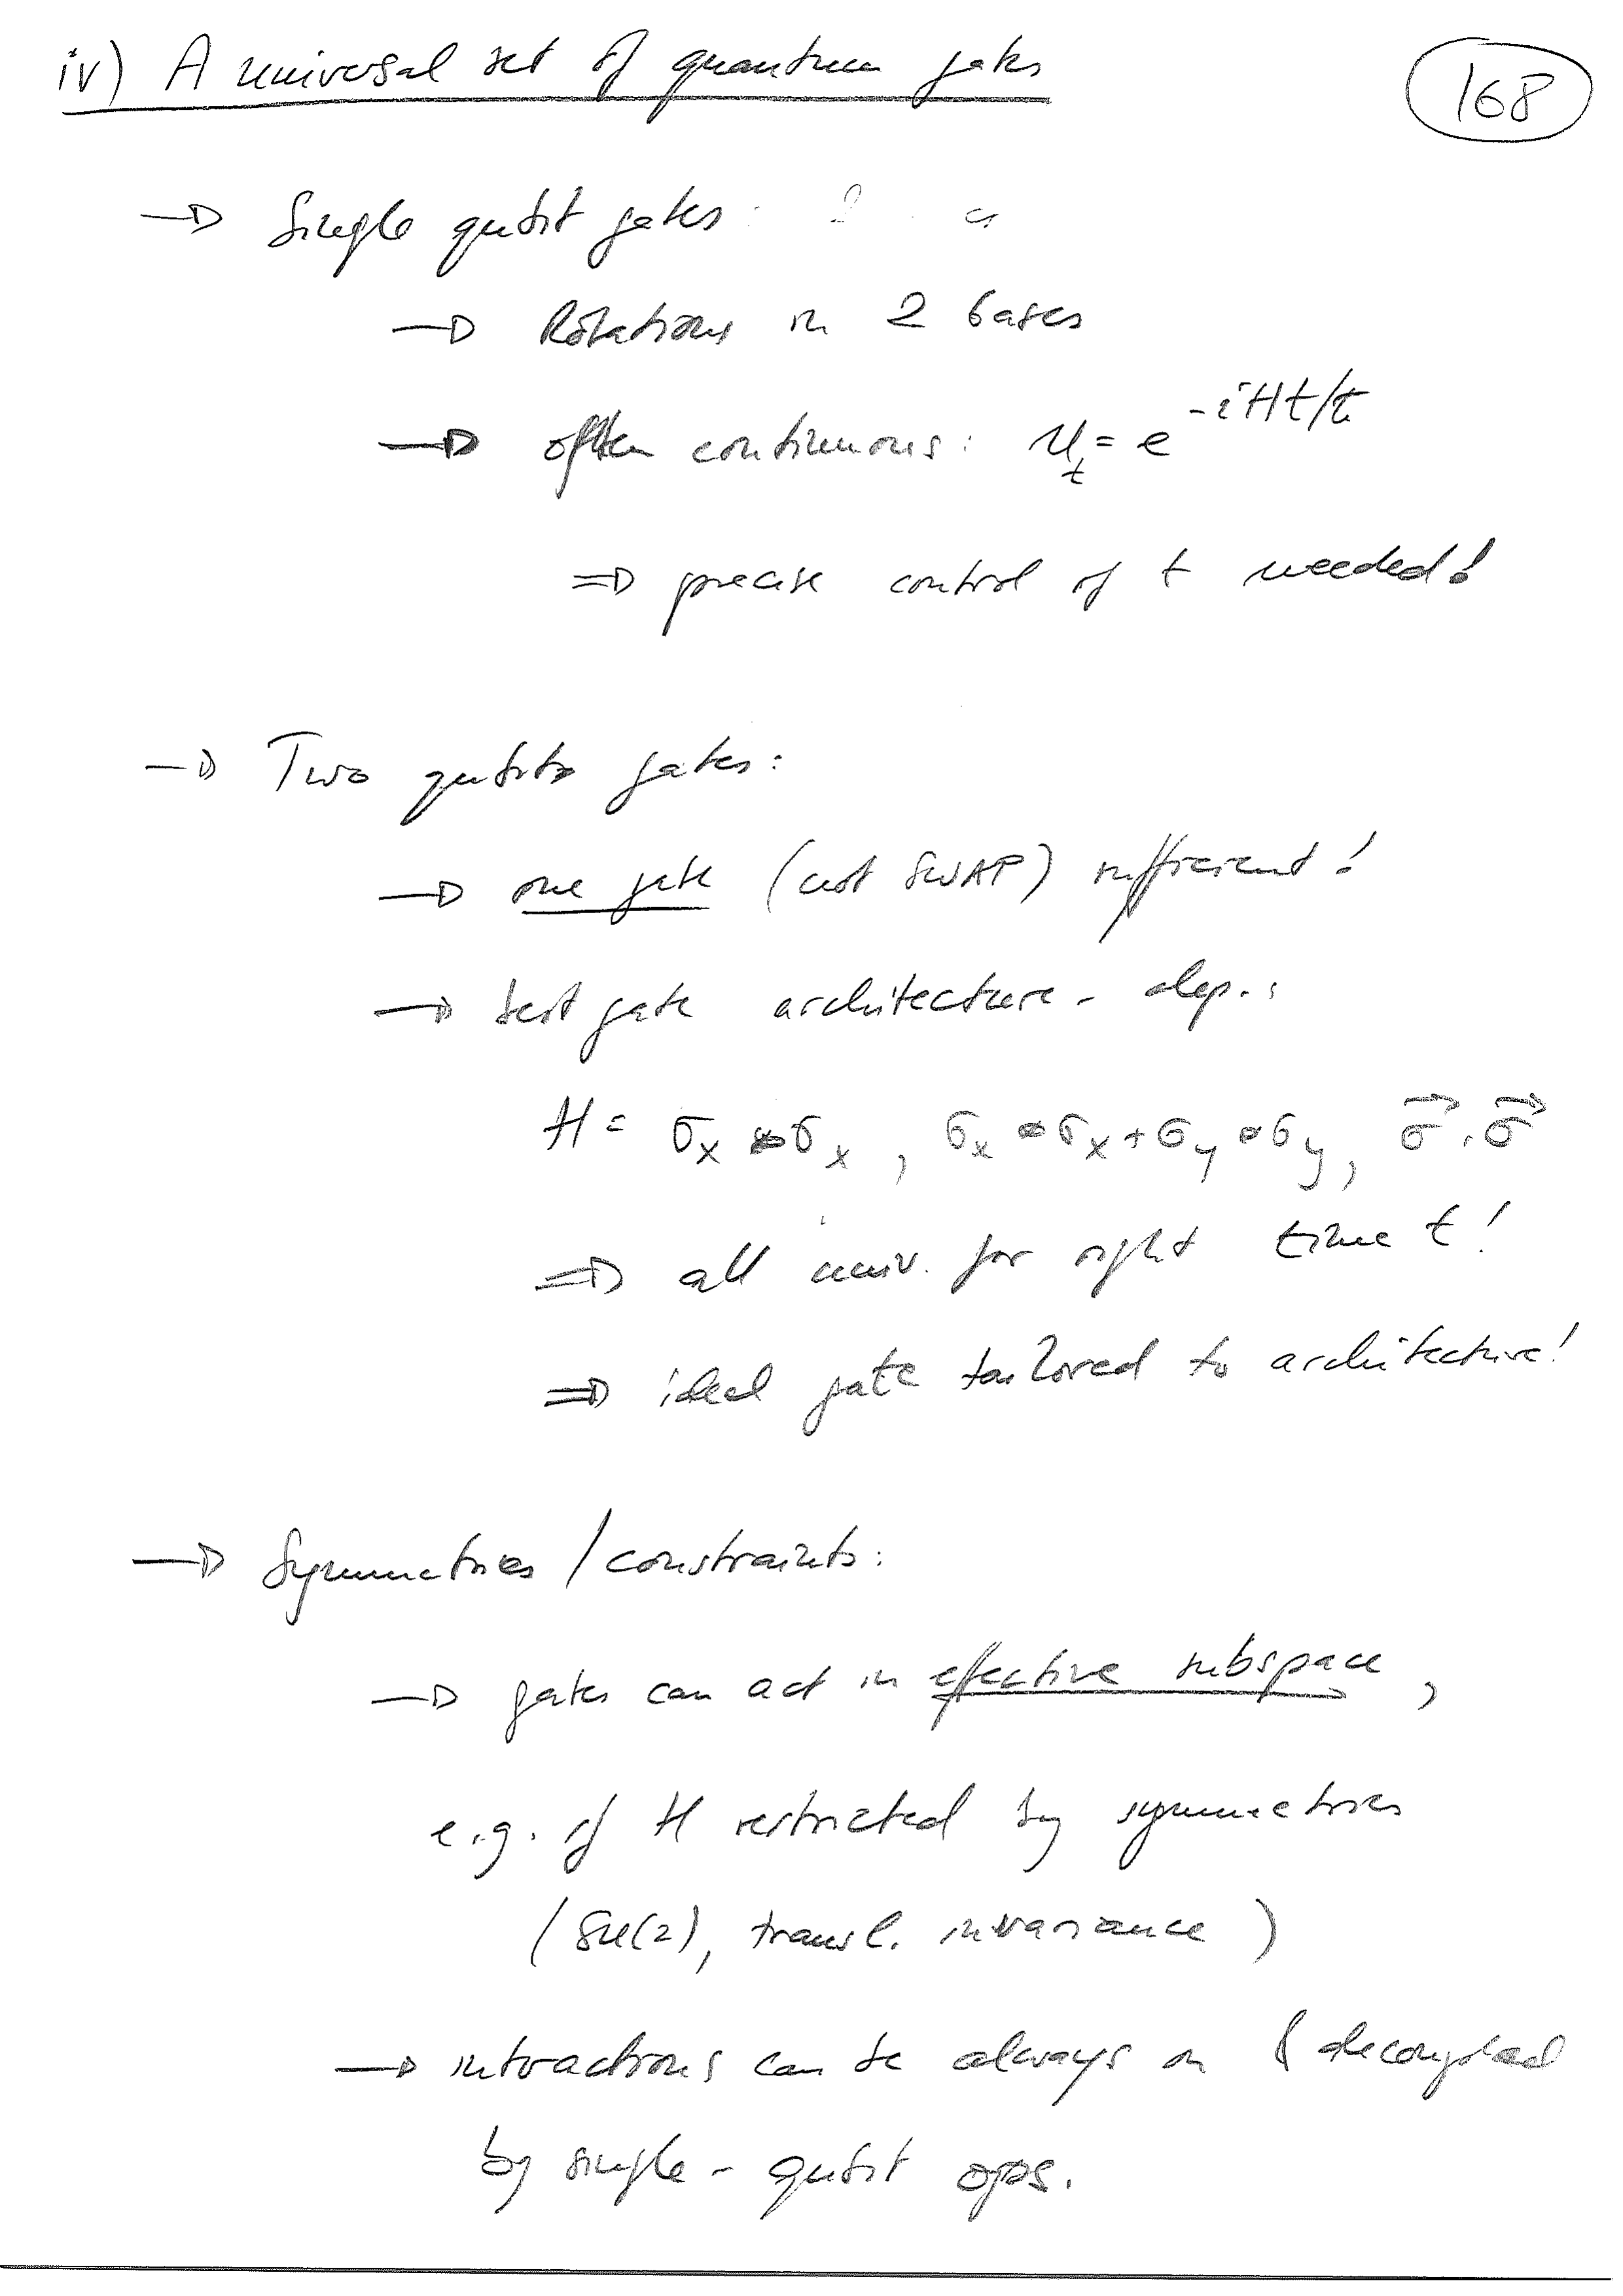 iv) A universal set of quantum gates
168
→ Single qubit gates:
→ Rotations in 2 bases
→ often continuous: U_t = e^{-iHt/ħ}
⇒ precise control of t needed!
→ Two qubit gates:
→ one gate (not SWAP) sufficient!
→ best gate architecture-dep.:
H = σ_x ⊗ σ_x, σ_x ⊗ σ_x + σ_y ⊗ σ_y, σ⃗ · σ⃗
⇒ all univ. for right time t!
⇒ ideal gate tailored to architecture!
→ Symmetries / constraints:
→ gates can act in effective subspace,
e.g. if H restricted by symmetries
(SU(2), transl. invariance)
→ interactions can be always on & decoupled
by single-qubit ops.